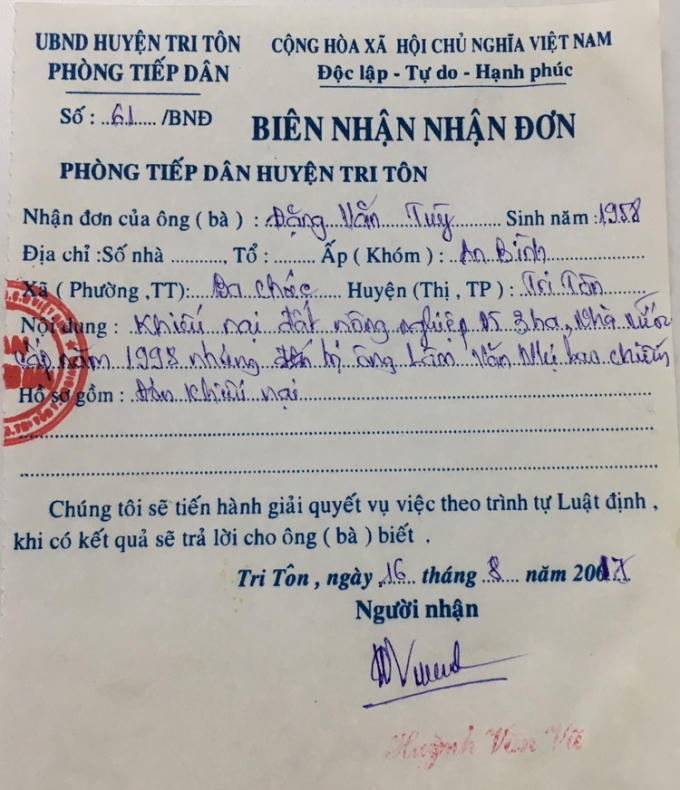 UBND HUYỆN TRI TÔN
PHÒNG TIẾP DÂN
CỘNG HÒA XÃ HỘI CHỦ NGHĨA VIỆT NAM
Độc lập - Tự do - Hạnh phúc
Số : 61 /BNĐ
BIÊN NHẬN NHẬN ĐƠN
PHÒNG TIẾP DÂN HUYỆN TRI TÔN
Nhận đơn của ông ( bà ) : Đặng Văn Tuỹ Sinh năm : 1958
Địa chỉ :Số nhà ........., Tổ : ........ Ấp ( Khóm ) : An Bình
Xã ( Phường ,TT): Ba Chúc Huyện (Thị , TP ) : Tri Tôn
Nội dung : Khiếu nại đất nông nghiệp 3ha, Nhà nước
cấp năm 1998 nhưng bị ông Lâm Văn bao chiếm
Hồ sơ gồm : Đơn khiếu nại
Chúng tôi sẽ tiến hành giải quyết vụ việc theo trình tự Luật định ,
khi có kết quả sẽ trả lời cho ông ( bà ) biết .
Tri Tôn , ngày 16 tháng 8 năm 2017
Người nhận
Huỳnh Văn Vũ